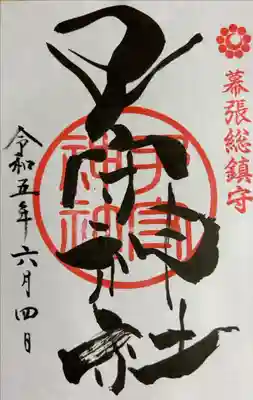 幕張総鎮守
子守神社
令和五年六月四日